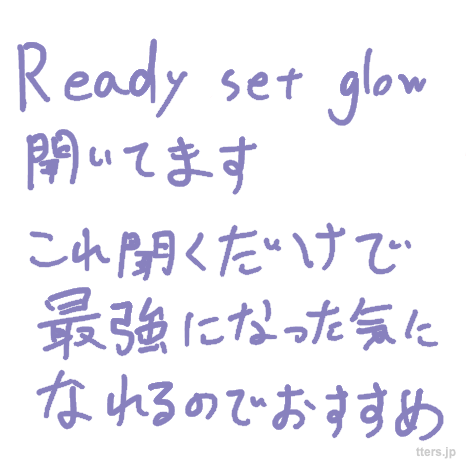 Ready set glow
開いてます
これ開くだけで
最強になった気に
なれるのでおすすめ
tters.jp